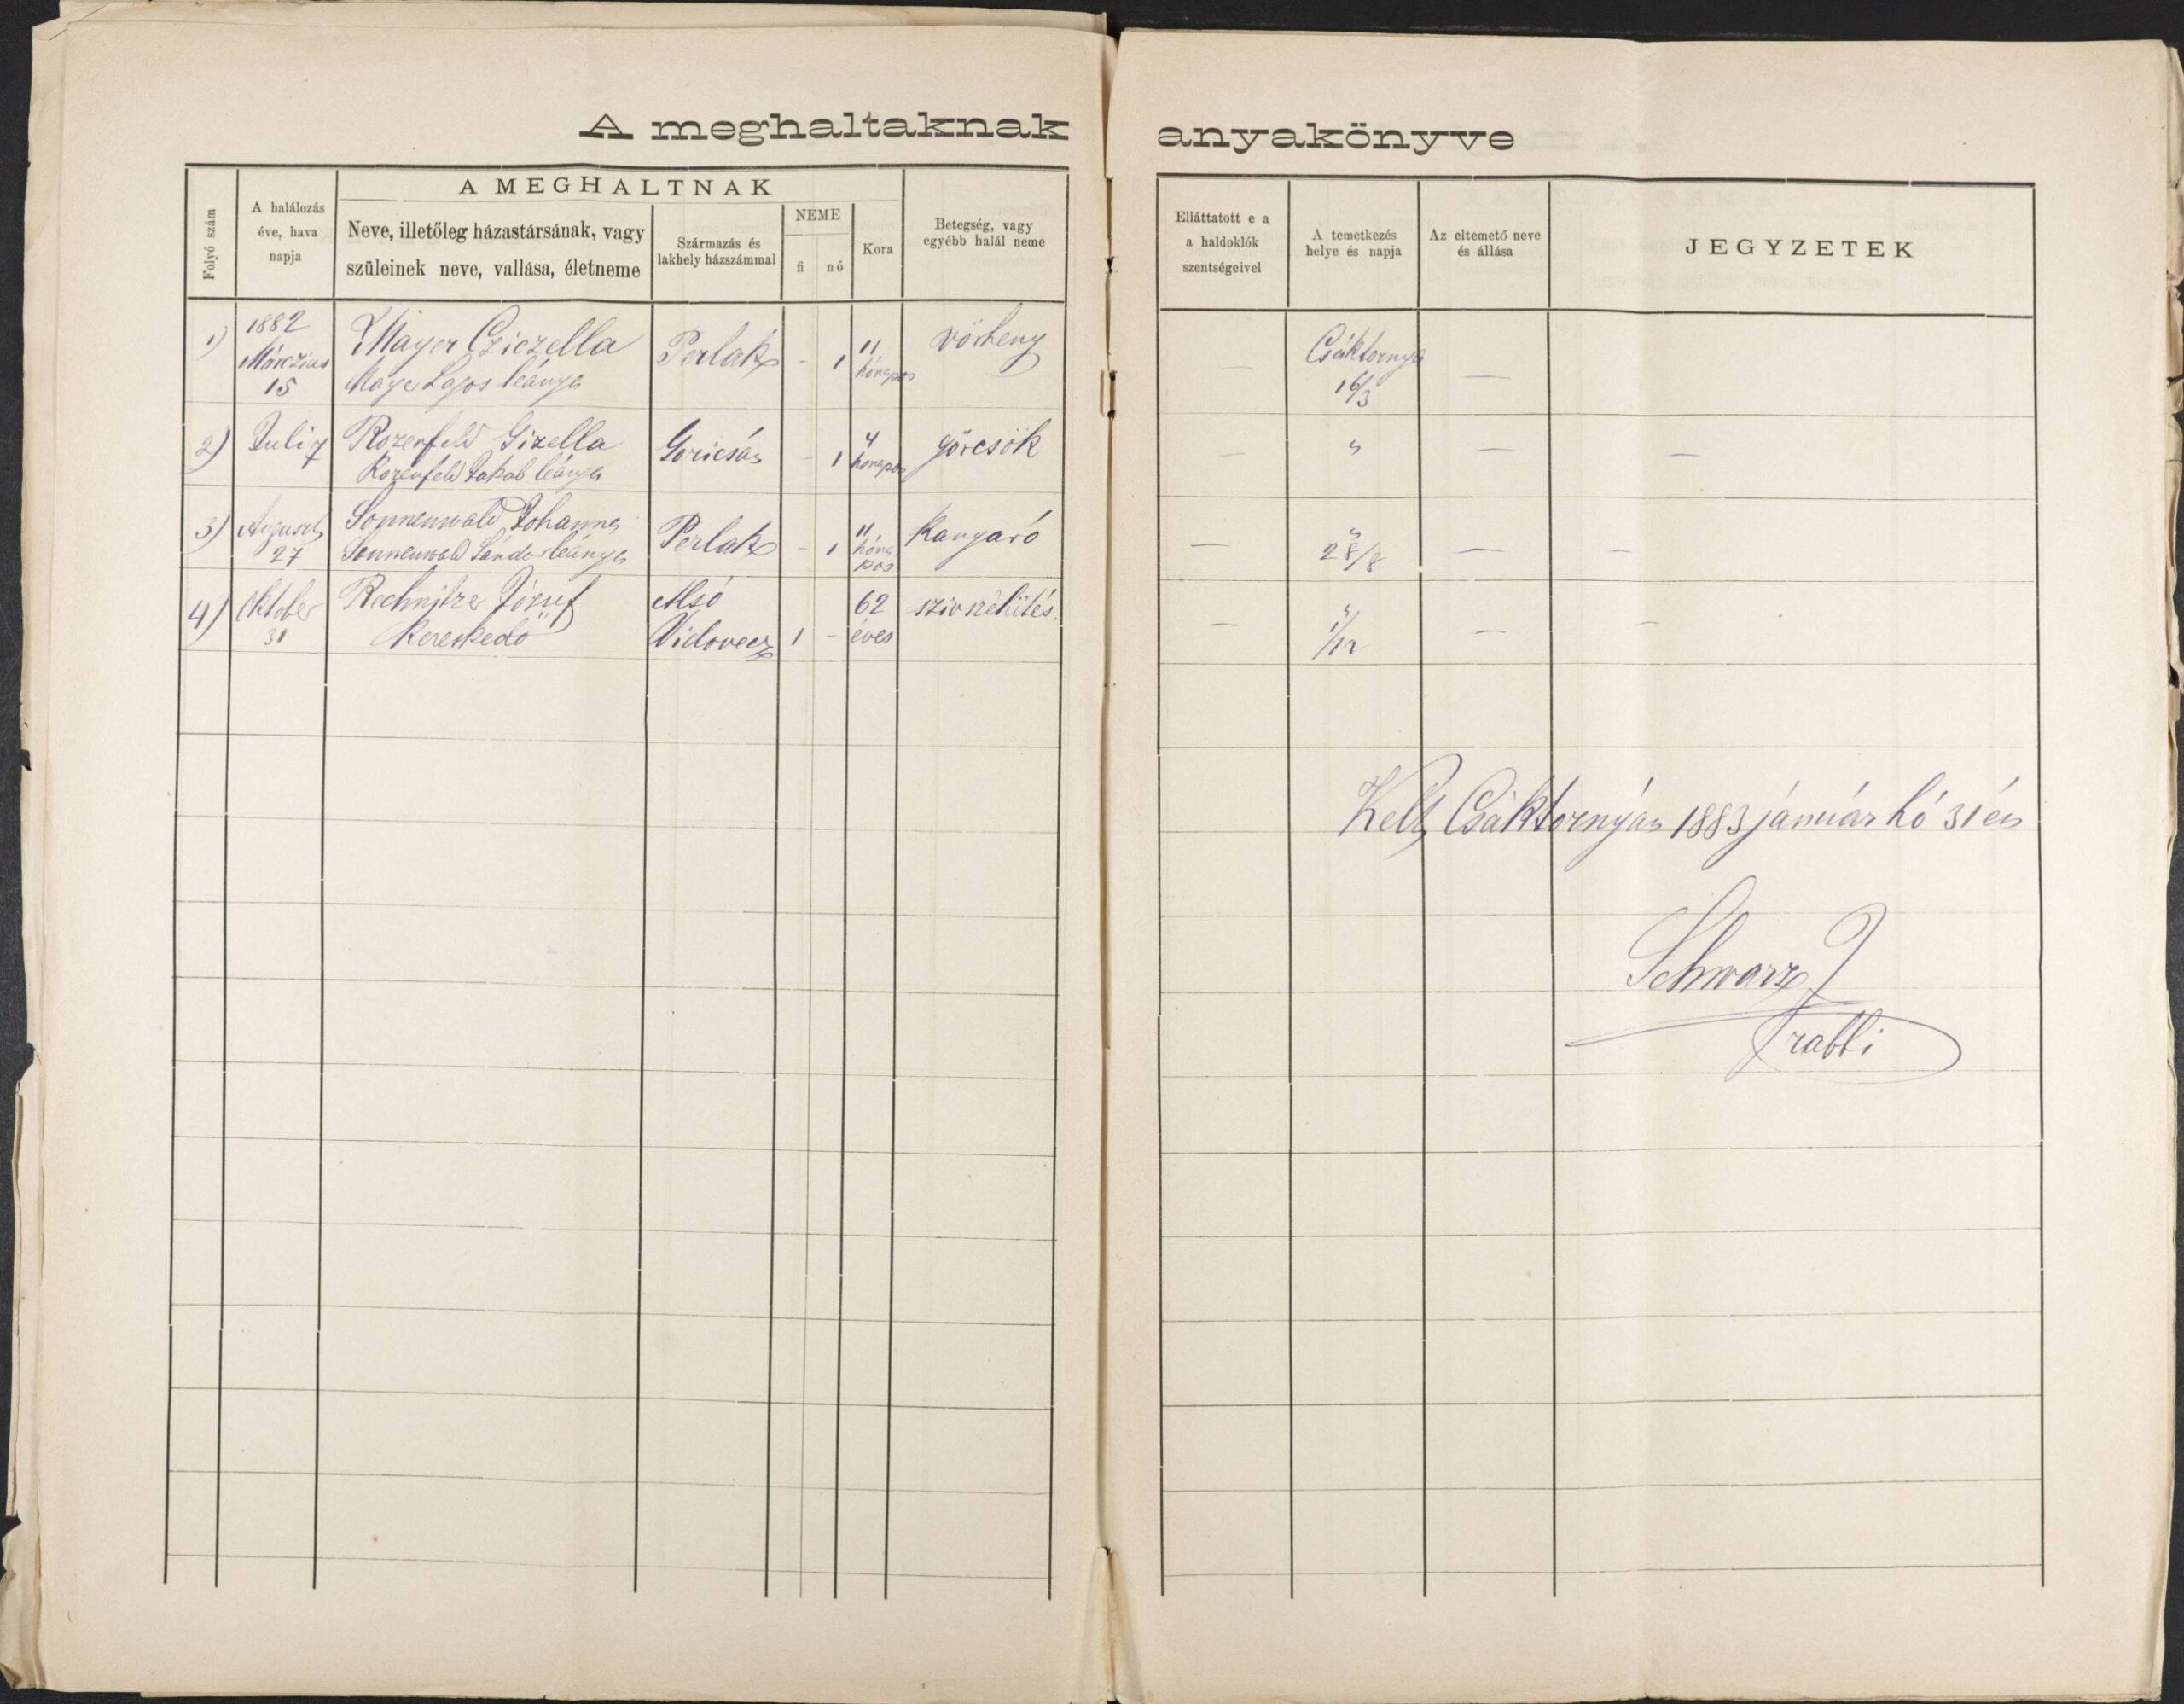 A meghaltaknak anyakönyve
Folyó szám
A halálozás
éve, hava
napja
A MEGHALTNAK
Neve, illetőleg házastársának, vagy
szüleinek neve, vallása, életneme
Származás és
lakhely házszámmal
NEME
fi nő
Kora
Betegség, vagy
egyébb halál neme
Elláttatott e a
a haldoklók
szentségeivel
A temetkezés
helye és napja
Az eltemető neve
és állása
JEGYZETEK
1)
1882
Márczius
15
Mayer Cziczella
Mayer Lajos leánya
Perlak
- 1
11
hónapos
vörheny
—
Csáktornya
16/3
—
2)
Juli 7
Rozenfeld Gizella
Rozenfeld Jakab leánya
Goricsán
- 1
4
hónapos
görcsök
—
"
—
—
3)
August
27
Sonnenwald Johanna
Sonnenwald Sándor leánya
Perlak
- 1
11
hóna
pos
Kanyaró
—
"
28/8
—
—
4)
Oktober
31
Rechnitzer József
kereskedő
Alsó
Vidovecz
1 -
62
éves
szivszélhűtés
—
"
1/11
—
—
Kelt Csáktornyán 1883 január hó 31én
Schwarz J
rabbi